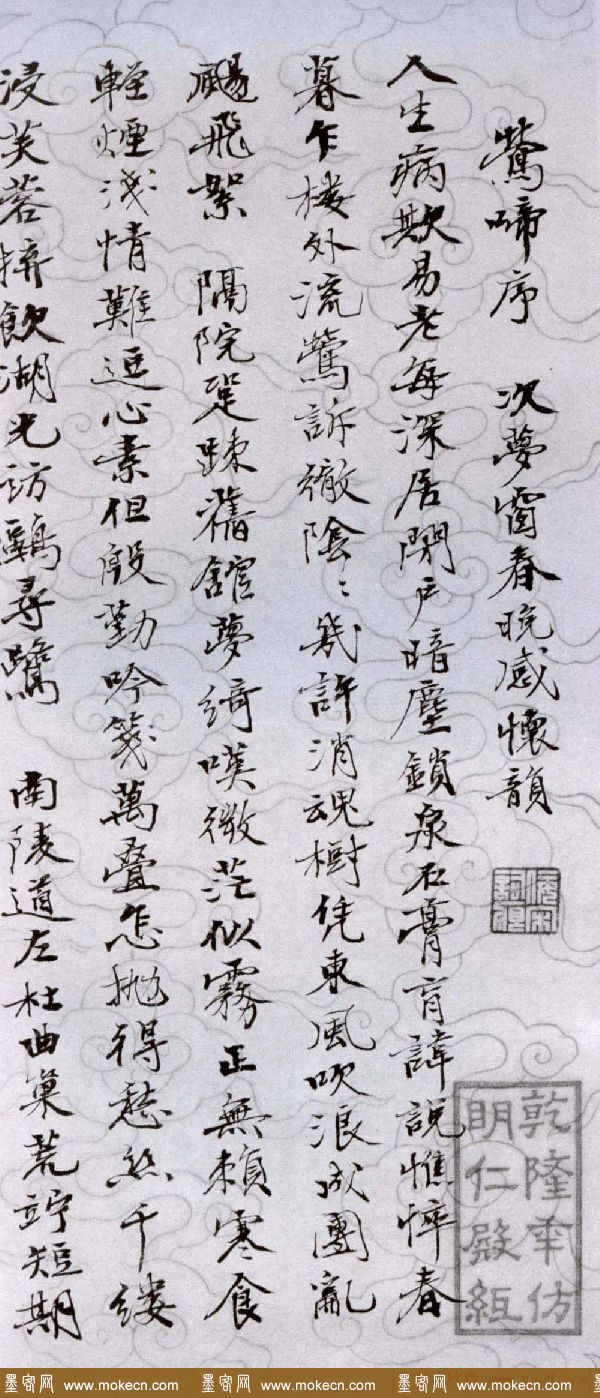 鶯啼序　次夢窗春晚感懷韻
人生病欺易老每深居閉戶暗塵鎖泉石膏肓諱說憔悴春
暮乍樓外流鶯訴徹陰〻幾許消魂樹凭東風吹浪成團亂
颺飛絮　隔院跫踈舊館夢綺嘆微茫似霧正無賴寒食
輕煙淺情難逗心素但殷勤吟箋萬疊怎拋得愁絲千縷
浸芙蓉擠飲湖光訪鷗尋鷺　南陵道左杜曲巢荒竚短期
乾隆年仿
明仁殿紙
墨客网 www.mokecn.com 墨客网 www.mokecn.com 墨客网 www.mokecn.com 墨客网 www.mokecn.com